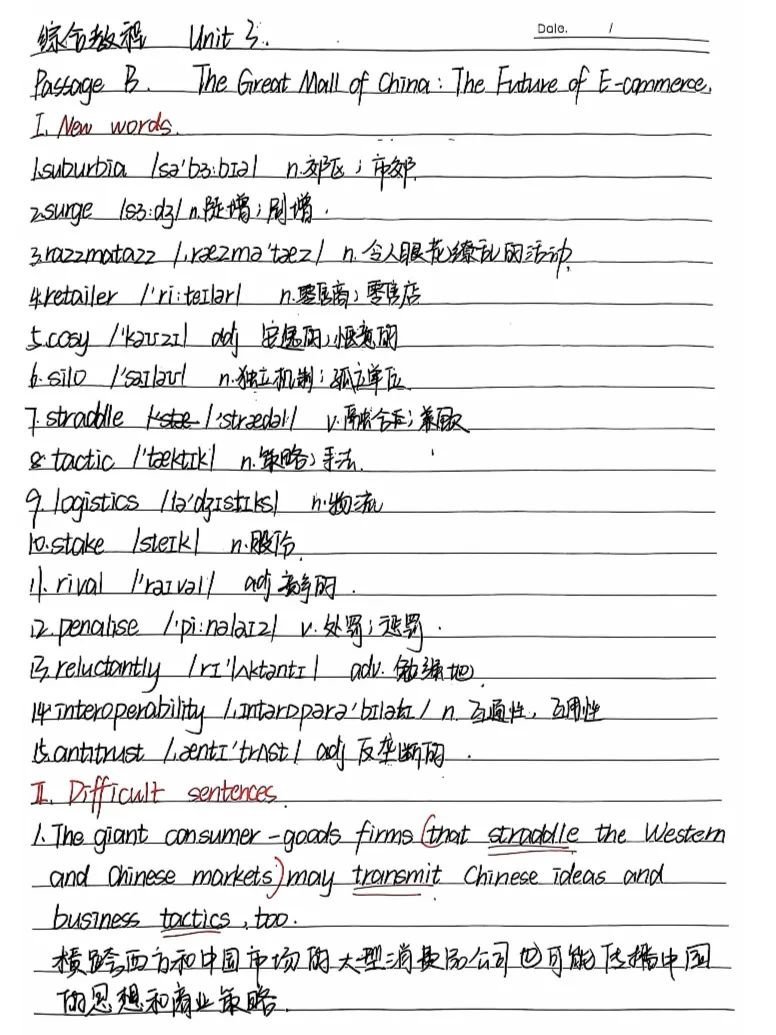 综合教程 Unit 3.
Date. /
Passage B. The Great Mall of China: The Future of E-commerce.
I. New words.
1.suburbia /sə'bɜ:bɪə/ n.郊区；市郊.
2.surge /sɜ:dʒ/ n.陡增；剧增.
3.razzmatazz /ˌræzmə'tæz/ n.令人眼花缭乱的活动.
4.retailer /'ri:teɪlər/ n.零售商；零售店
5.cosy /'kəʊzɪ/ adj 安逸的；惬意的
6.silo /'saɪləʊ/ n.独立机制；孤立单位.
7.straddle /'stræ /'strædəl/ v.融合后；兼顾
8.tactic /'tæktɪk/ n.策略；手法.
9.logistics /lə'dʒɪstɪks/ n.物流
10.stake /steɪk/ n.股份.
11.rival /'raɪvəl/ adj 竞争的.
12.penalise /'pi:nəlaɪz/ v.处罚；惩罚.
13.reluctantly /rɪ'lʌktəntɪ/ adv.勉强地.
14.interoperability /ˌɪntərɒpərə'bɪlətɪ/ n.互通性，互用性
15.antitrust /ˌæntɪ'trʌst/ adj 反垄断的.
II. Difficult sentences.
1.The giant consumer-goods firms (that straddle the Western
and Chinese markets) may transmit Chinese ideas and
business tactics, too.
横跨西方和中国市场的大型消费品公司也可能传播中国
的思想和商业策略.